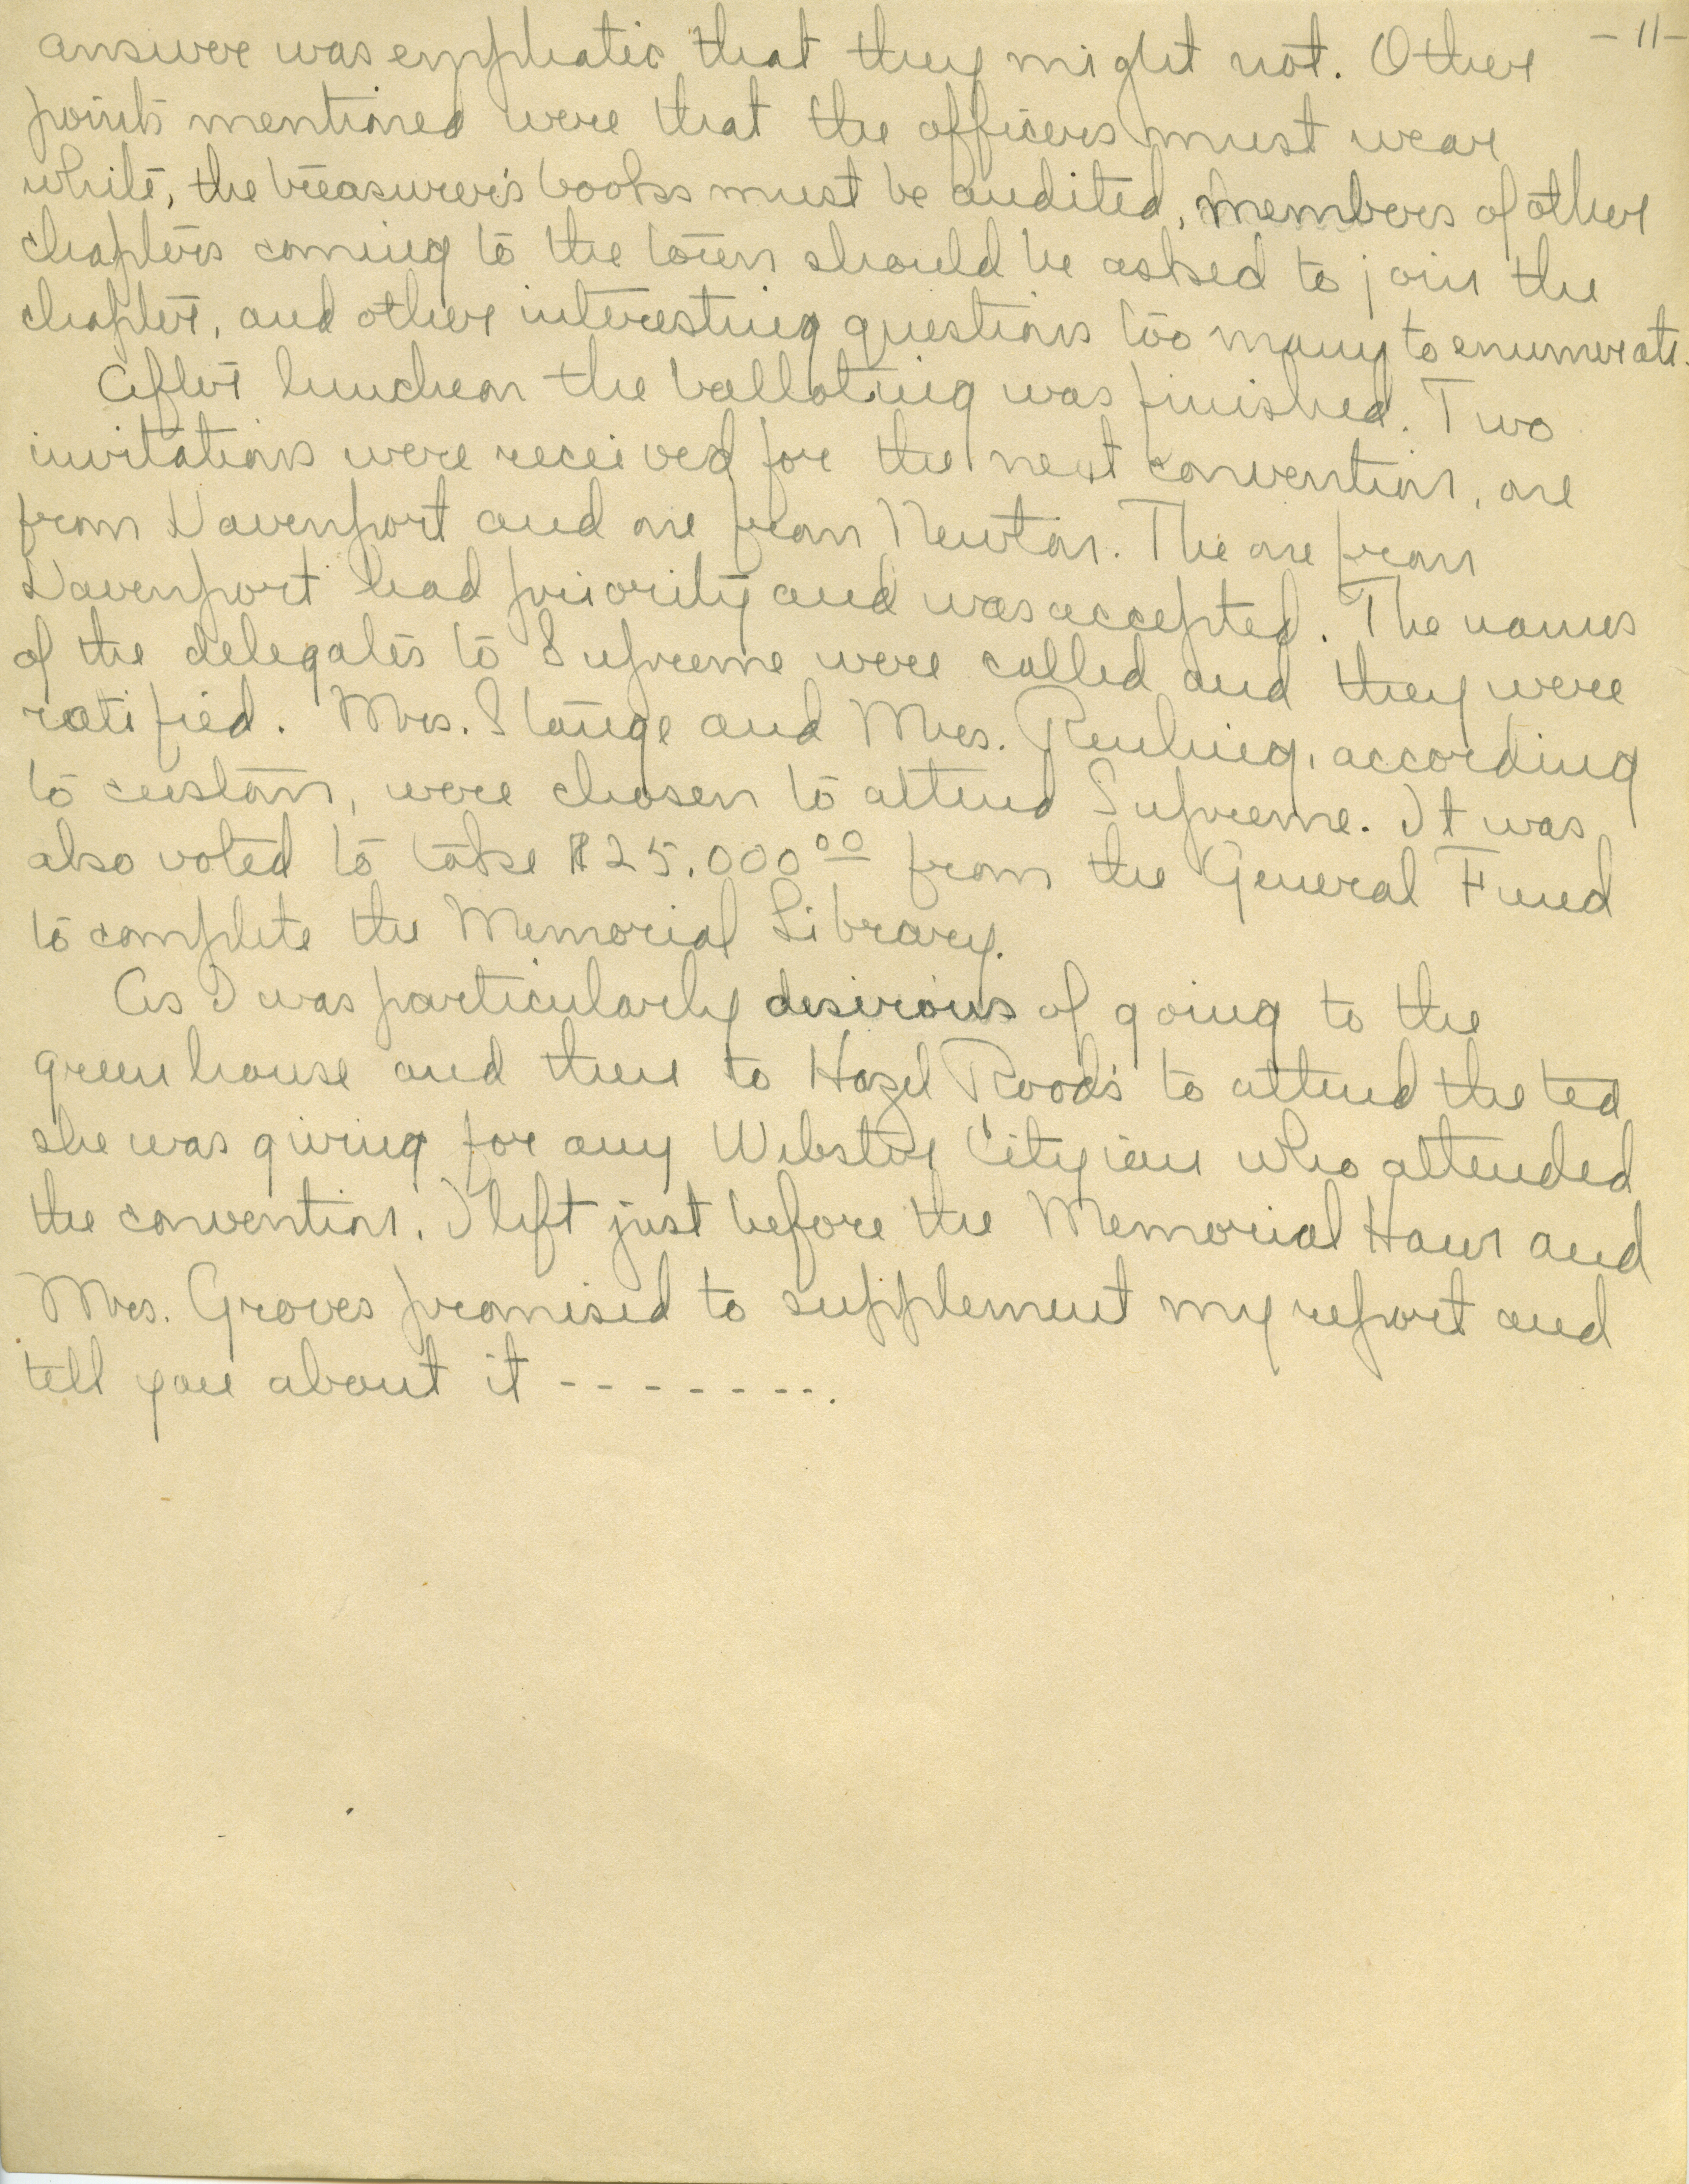 - 11 -
answer was emphatic that they might not. Other
points mentioned were that the officers must wear
white, the treasurer's books must be audited, members of other
chapters coming to the town should be asked to join the
chapter, and other interesting questions too many to enumerate.
After luncheon the balloting was finished. Two
invitations were received for the next convention, one
from Davenport and one from Newton. The one from
Davenport had priority and was accepted. The names
of the delegates to Supreme were called and they were
ratified. Mrs. Stange and Mrs. Reuling, according
to custom, were chosen to attend Supreme. It was
also voted to take $25.000 00 from the General Fund
to complete the Memorial Library.
As I was particularly desirous of going to the
greenhouse and then to Hazel Rood's to attend the tea
she was giving for any Webster Cityian who attended
the convention, I left just before the Memorial Hour and
Mrs. Groves promised to supplement my report and
tell you about it - - - - - - - -.